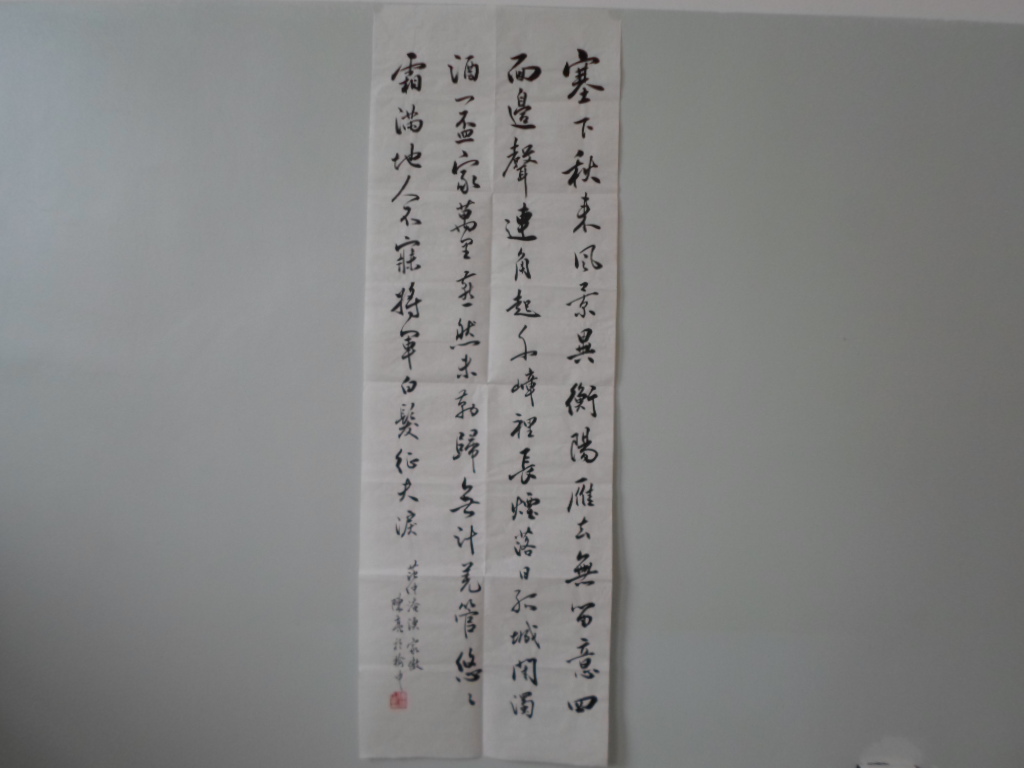 塞下秋来风景異衡陽雁去無留意四
面邊聲連角起千嶂裡長煙落日孤城閉濁
酒一盃家萬里燕然未勒歸無計羌管悠〻
霜满地人不寐将軍白髮征夫淚
范仲淹漁家傲